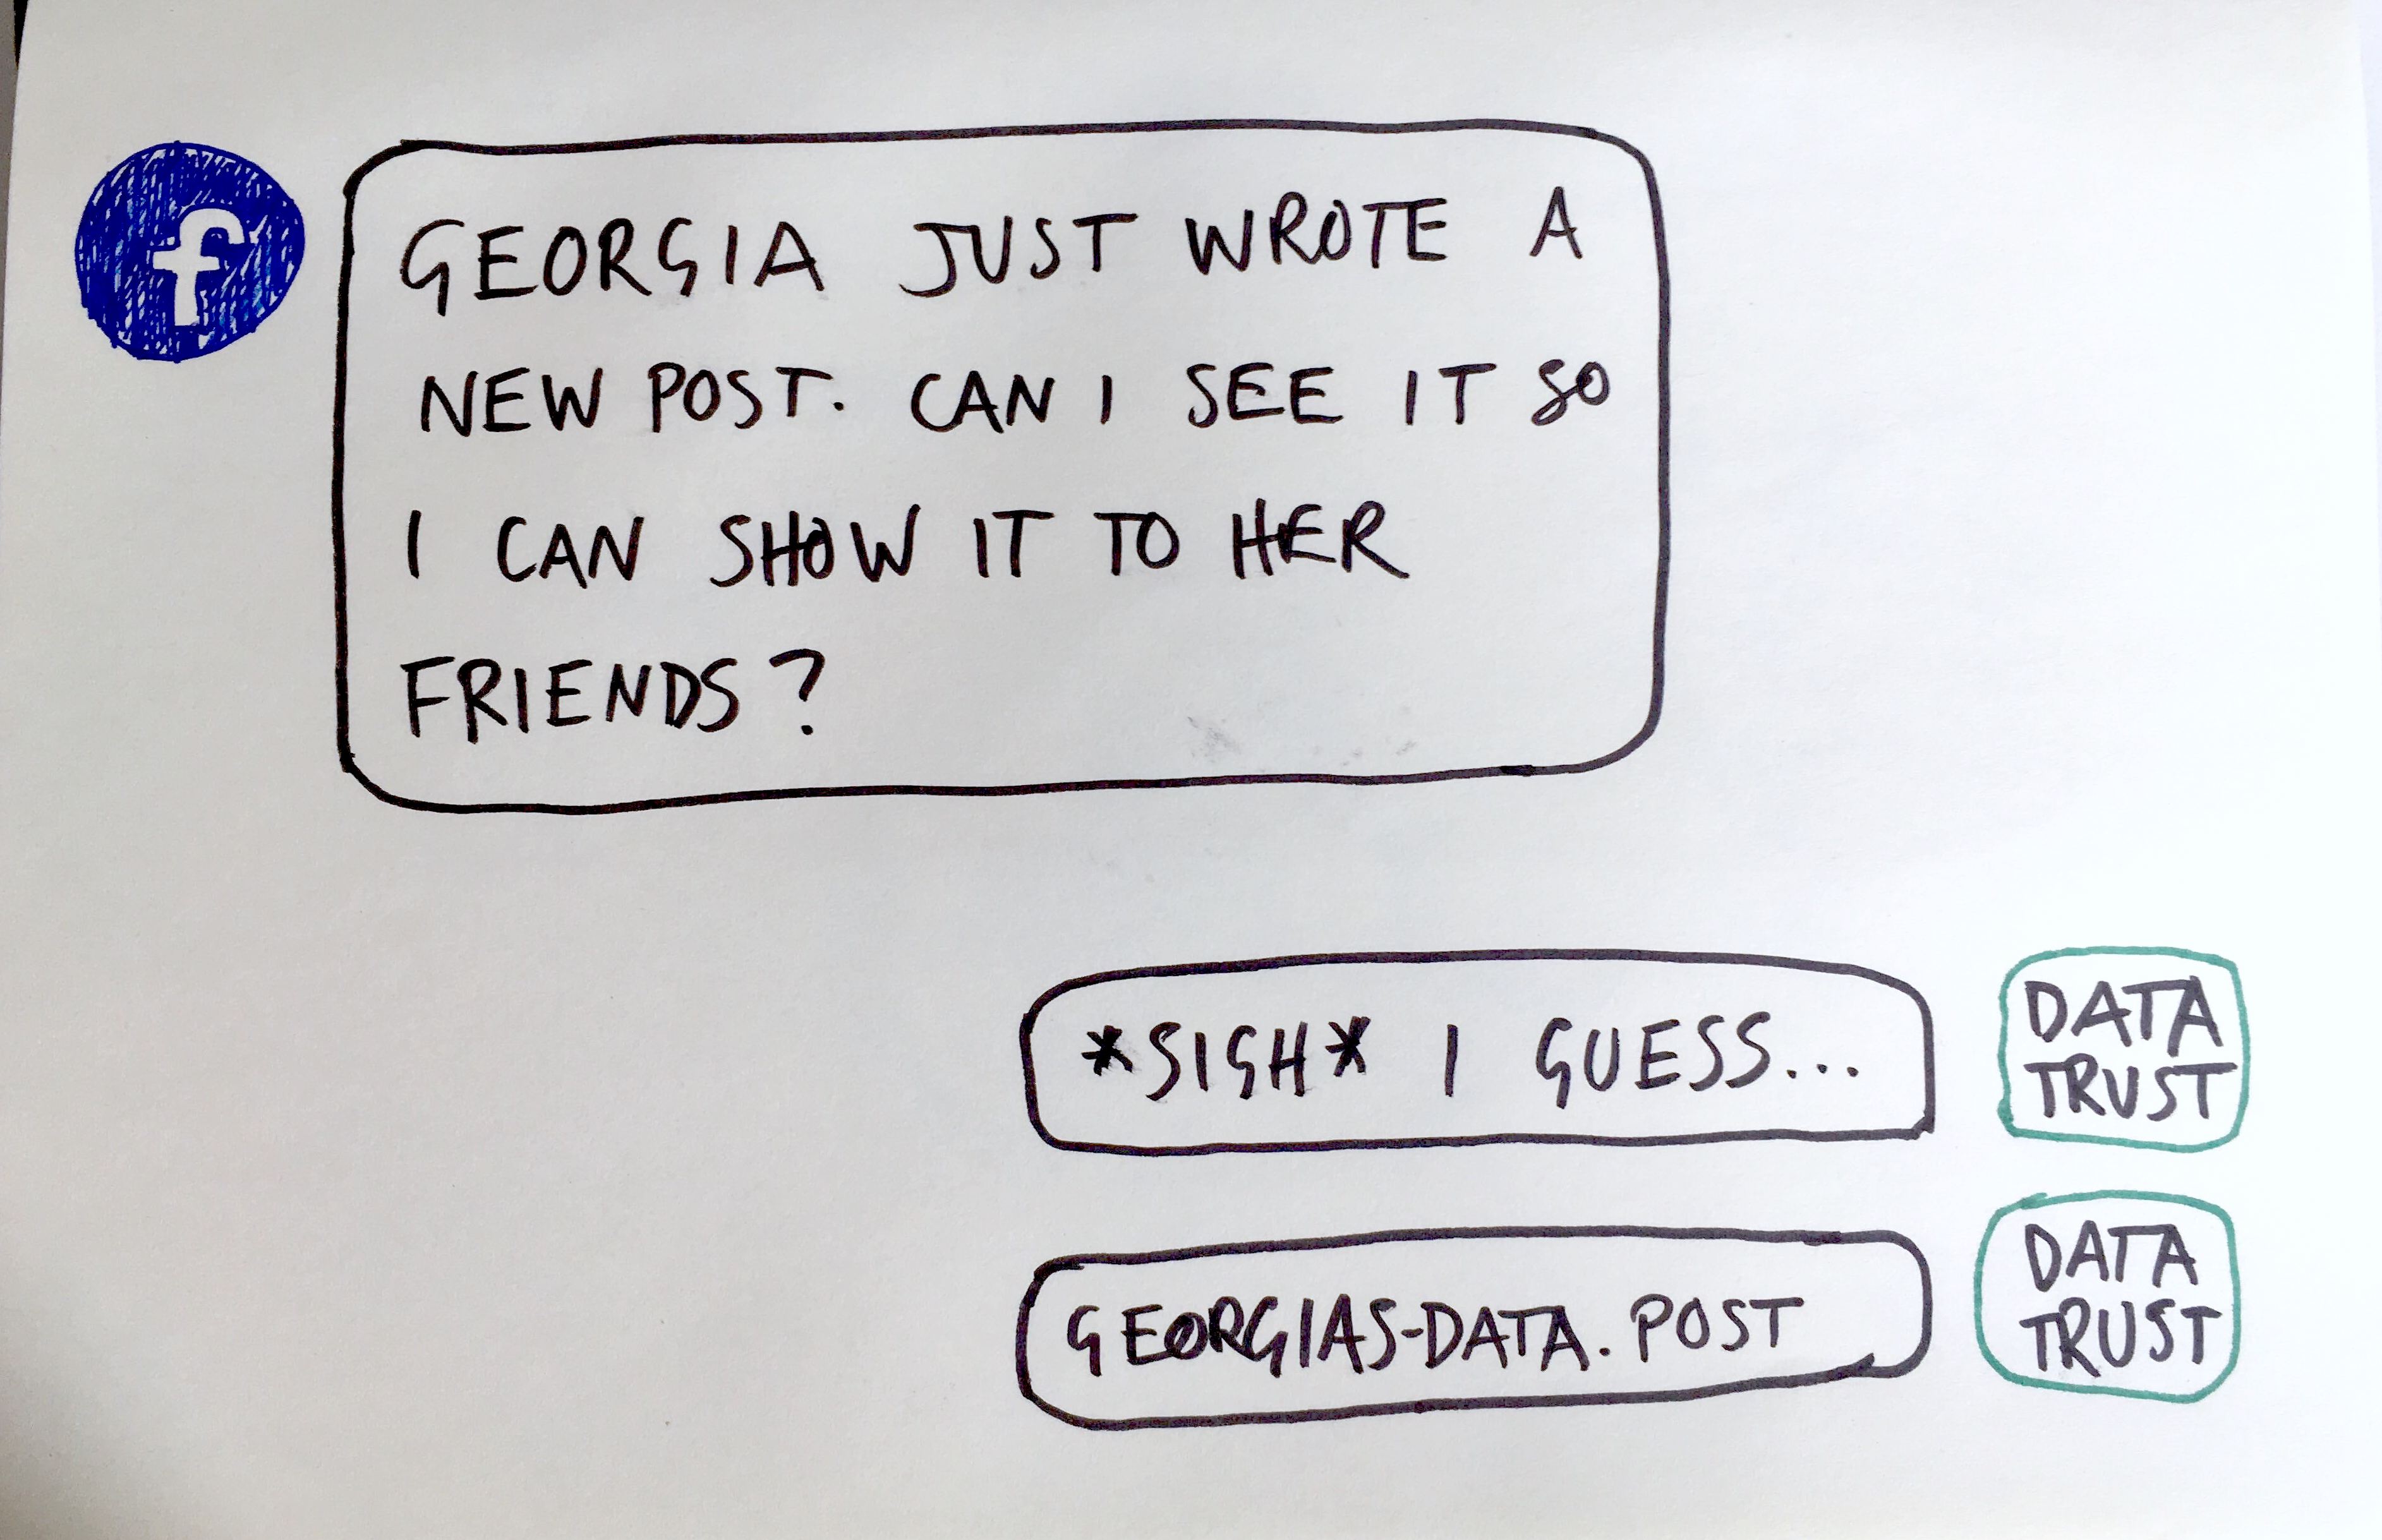 f
GEORGIA JUST WROTE A
NEW POST. CAN I SEE IT SO
I CAN SHOW IT TO HER
FRIENDS?
*SIGH* I GUESS...
DATA
TRUST
GEORGIAS-DATA.POST
DATA
TRUST